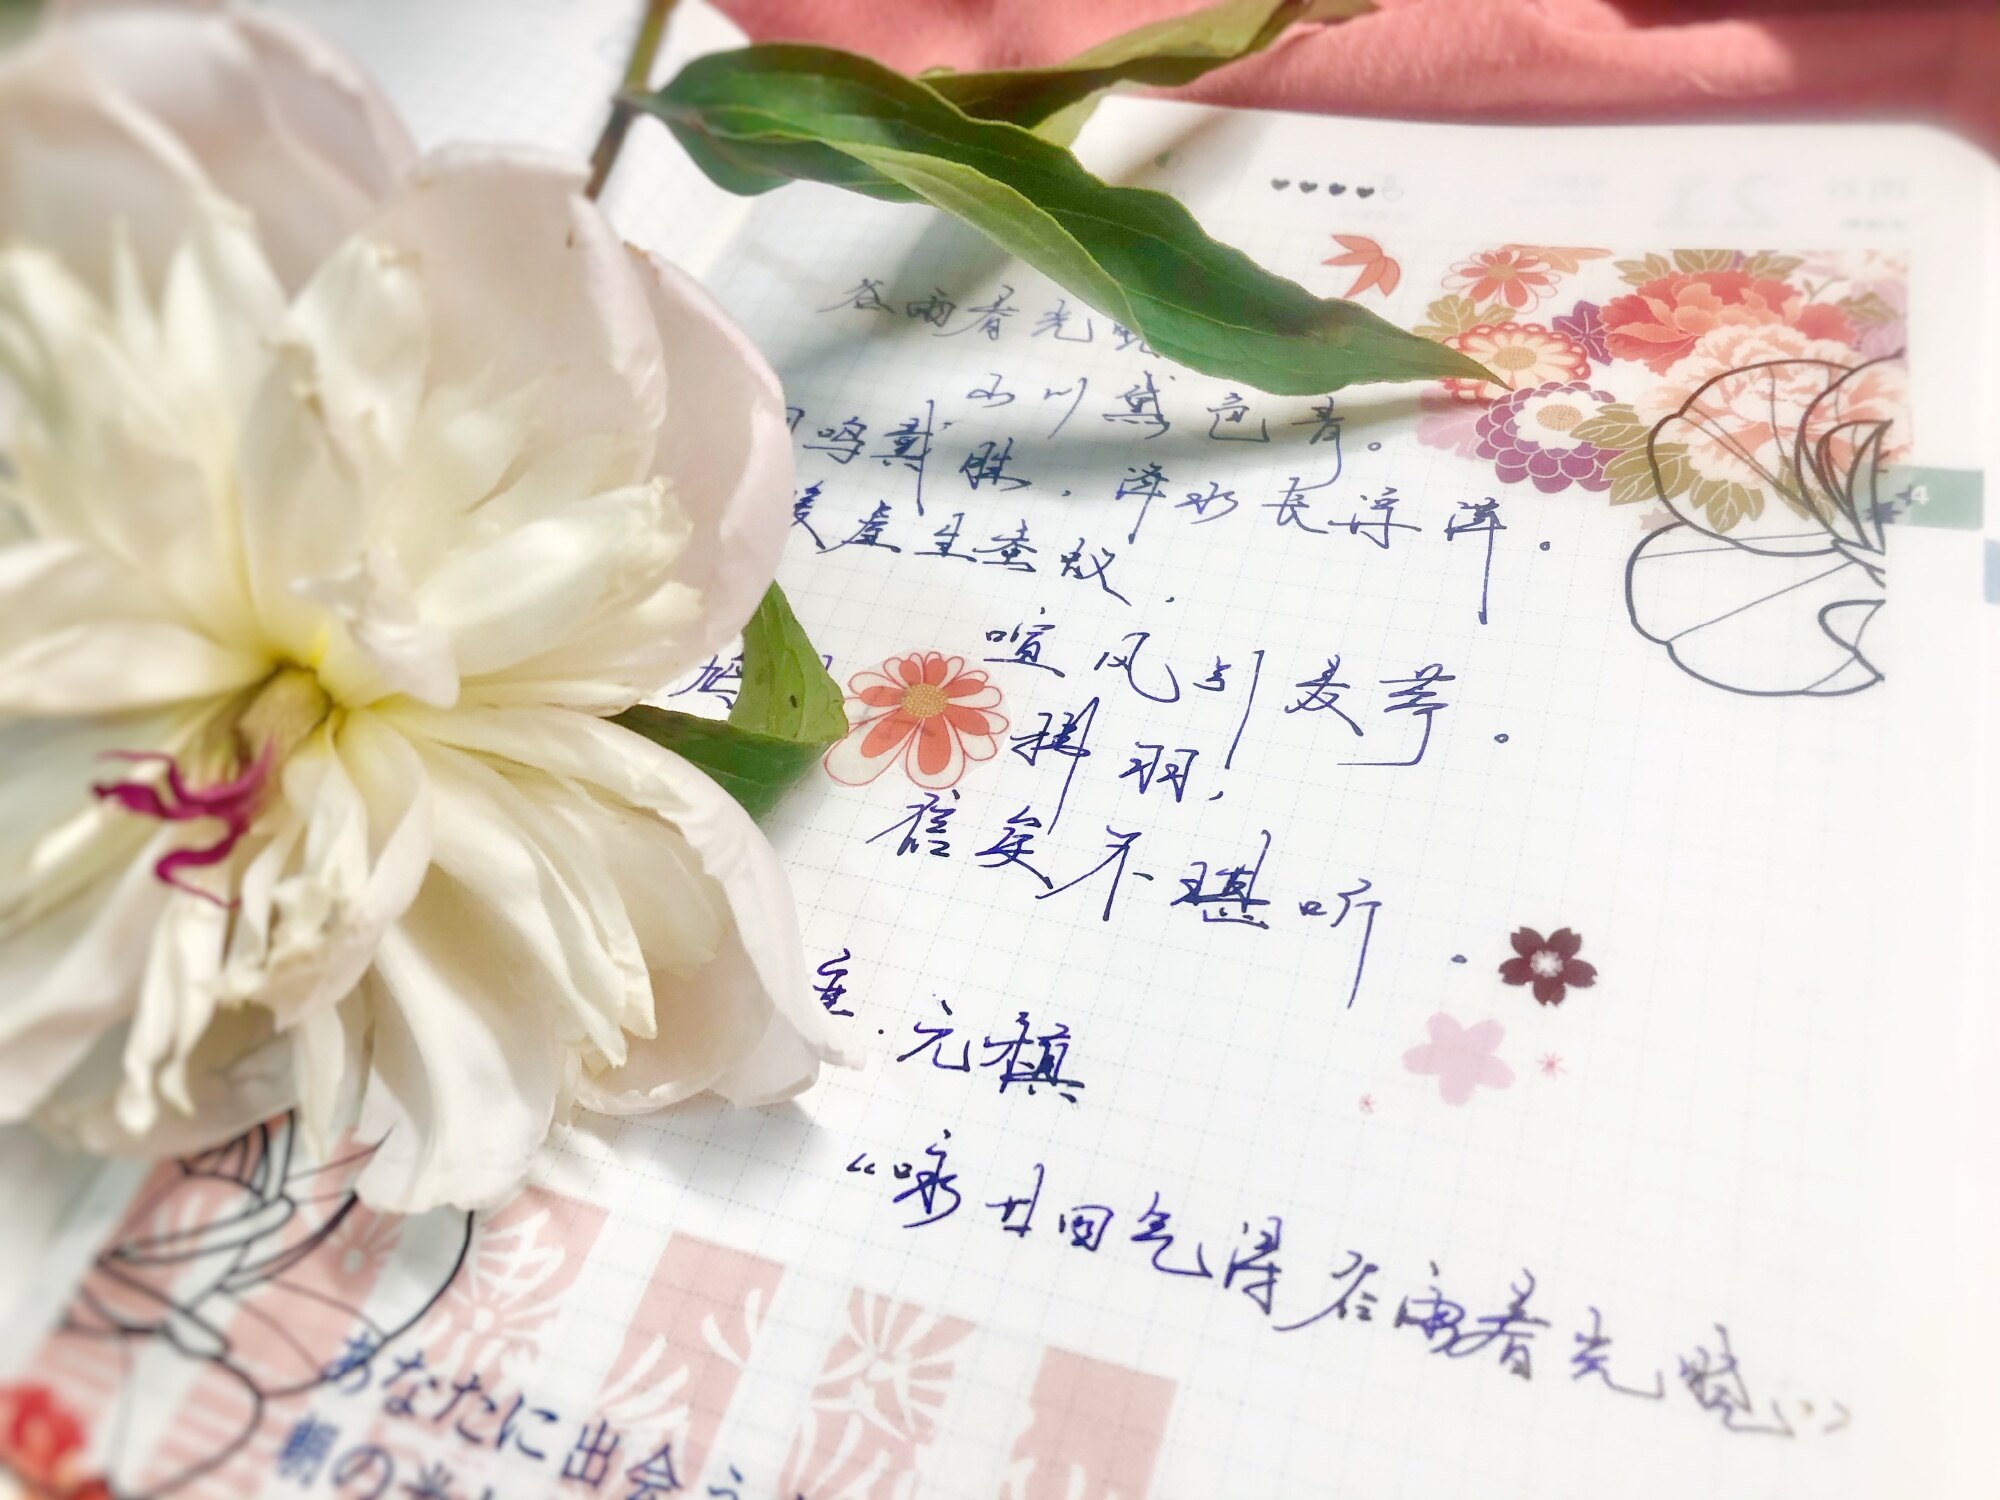 谷雨春光晓
山川黛色青。
鸣戴胜，泽水长浮萍。
暖屋生蚕蚁，
喧风引麦葶。
鸠
拂羽，
信矣不堪听.
唐.元稹
“咏廿四气诗谷雨春光晓”
あなたに出会う
朝の光